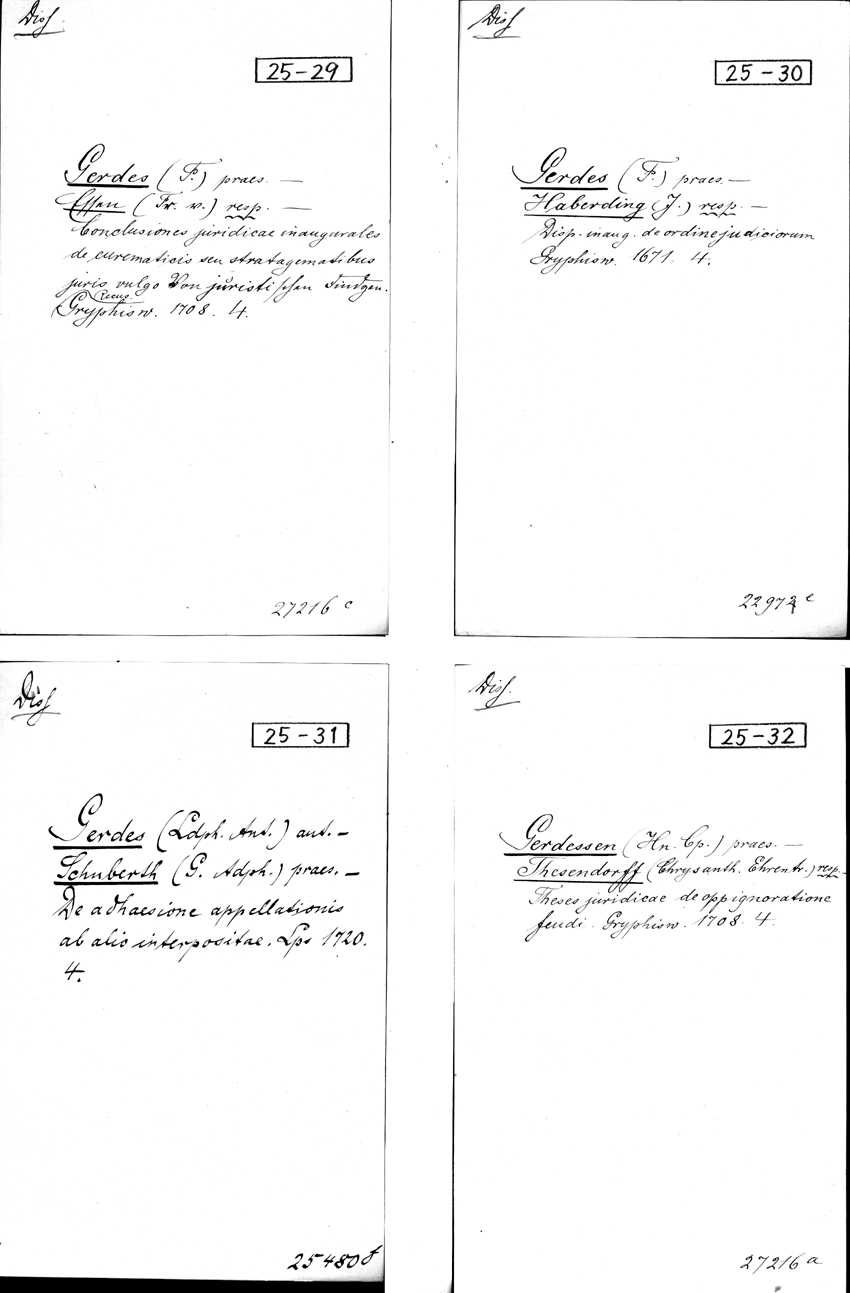 Diss.
25-29
Gerdes (F.) praes. —
Essen (Fr. v.) resp. —
Conclusiones juridicae inaugurales
de eurematicis seu stratagematibus
juris vulgo Von juristischen Findgen.
Recus.
Gryphisw. 1708. 4.
27216 c
Diss
25-30
Gerdes (F.) praes. —
Haberding (J.) resp. —
Disp. inaug. de ordine judiciorum
Gryphisw. 1671. 4.
22972 e
Diss
25-31
Gerdes (Ldph. Ant.) aut. —
Schuberth (G. Adph.) praes. —
De adhaesione appellationis
ab alio interpositae. Lps 1720.
4.
25480 f
Diss.
25-32
Gerdessen (Hn. Cp.) praes. —
Thesendorff (Chrysanth. Ehrentr.) resp. —
Theses juridicae de oppignoratione
feudi. Gryphisw. 1708. 4.
27216 a